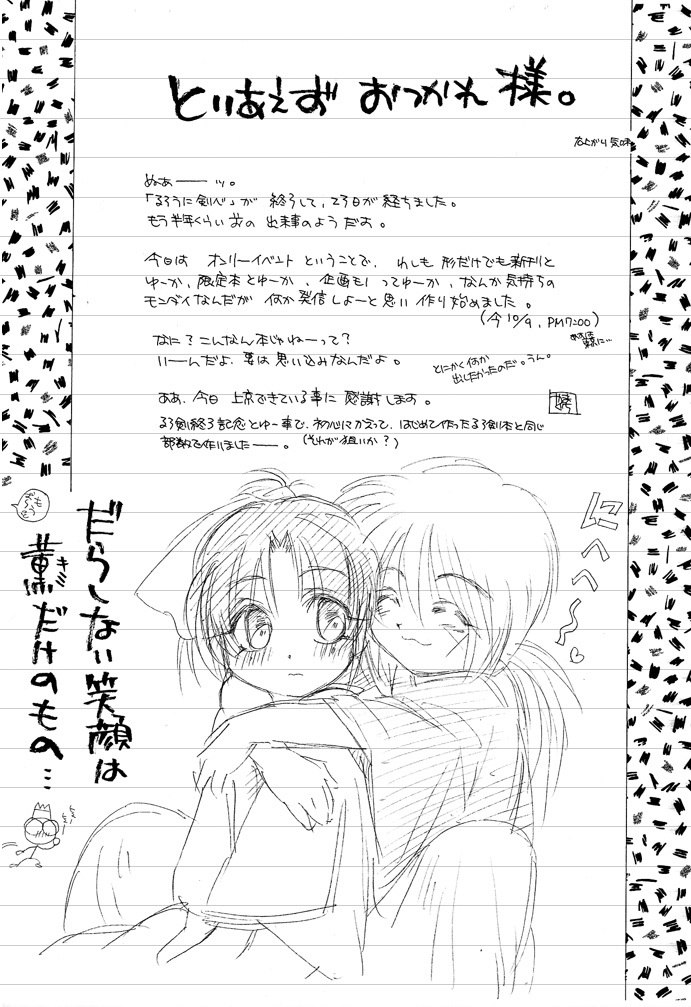 とりあえず おつかれ 様。
なしがり 気味
ぬぁーーッ。
「るろうに剣心」が 終了して、23日が経ちました。
もう半年くらい前の 出来事のようだよ。
今日は オンリーイベント ということで、わしも 形だけでも新刊と
ゆーか、限定本とゆーか、企画もしってゆーか、なんか気持ちの
モンダイなんだが 何か発信しよーと思い 作り始めました。
(今10/9、PM7:00)
なに?こんなん本じゃねーって?
いーんだよ、要は思い込みなんだよ。
とにかく何か
出したかったのだ。うん。
ああ、今日 上京できている事に 感謝します。
るろ剣終了記念とゆー事で、初心にかえって、はじめて作ったるろ剣本と同じ
部数で作りましたーー。(それが狙いか?)
だらしない笑顔は
薫だけのもの…
キミ
にへへへ〜♡